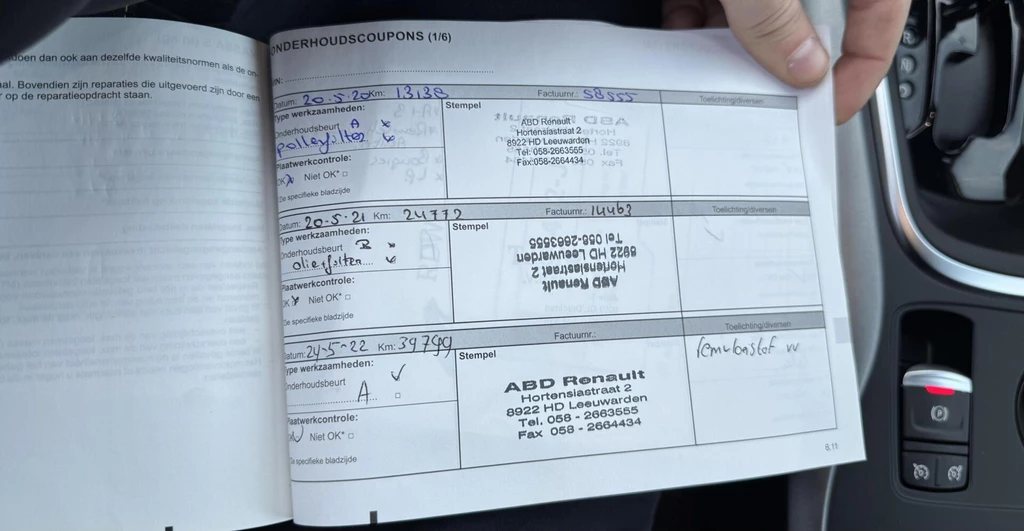 doen dan ook aan dezelfde kwaliteitsnormen als de on-
al. Bovendien zijn reparaties die uitgevoerd zijn door een
op de reparatieopdracht staan.
ONDERHOUDSCOUPONS (1/6)
Datum: 20-5-20 Km: 13138 Factuurnr.: 58555 Toelichting/diversen
Type werkzaamheden: Stempel
Onderhoudsbeurt A
pollenfilter
Plaatwerkcontrole:
OK Niet OK* □
De specifieke bladzijde
ABD Renault
Hortensiastraat 2
8922 HD Leeuwarden
Tel: 058-2663565
Fax:058-2664434
Datum: 20-5-21 Km: 24772 Factuurnr.: 14463 Toelichting/diversen
Type werkzaamheden: Stempel
Onderhoudsbeurt B
oliefilter
Plaatwerkcontrole:
OK Niet OK* □
De specifieke bladzijde
ABD Renault
Hortensiastraat 2
8922 HD Leeuwarden
Tel 058-2663555
Datum: 24-5-22 Km: 39799 Factuurnr.: Toelichting/diversen
Type werkzaamheden: Stempel remvloeistof vv
Onderhoudsbeurt
A
Plaatwerkcontrole:
Niet OK* □
De specifieke bladzijde
ABD Renault
Hortensiastraat 2
8922 HD Leeuwarden
Tel. 058 - 2663555
Fax 058 - 2664434
6.11